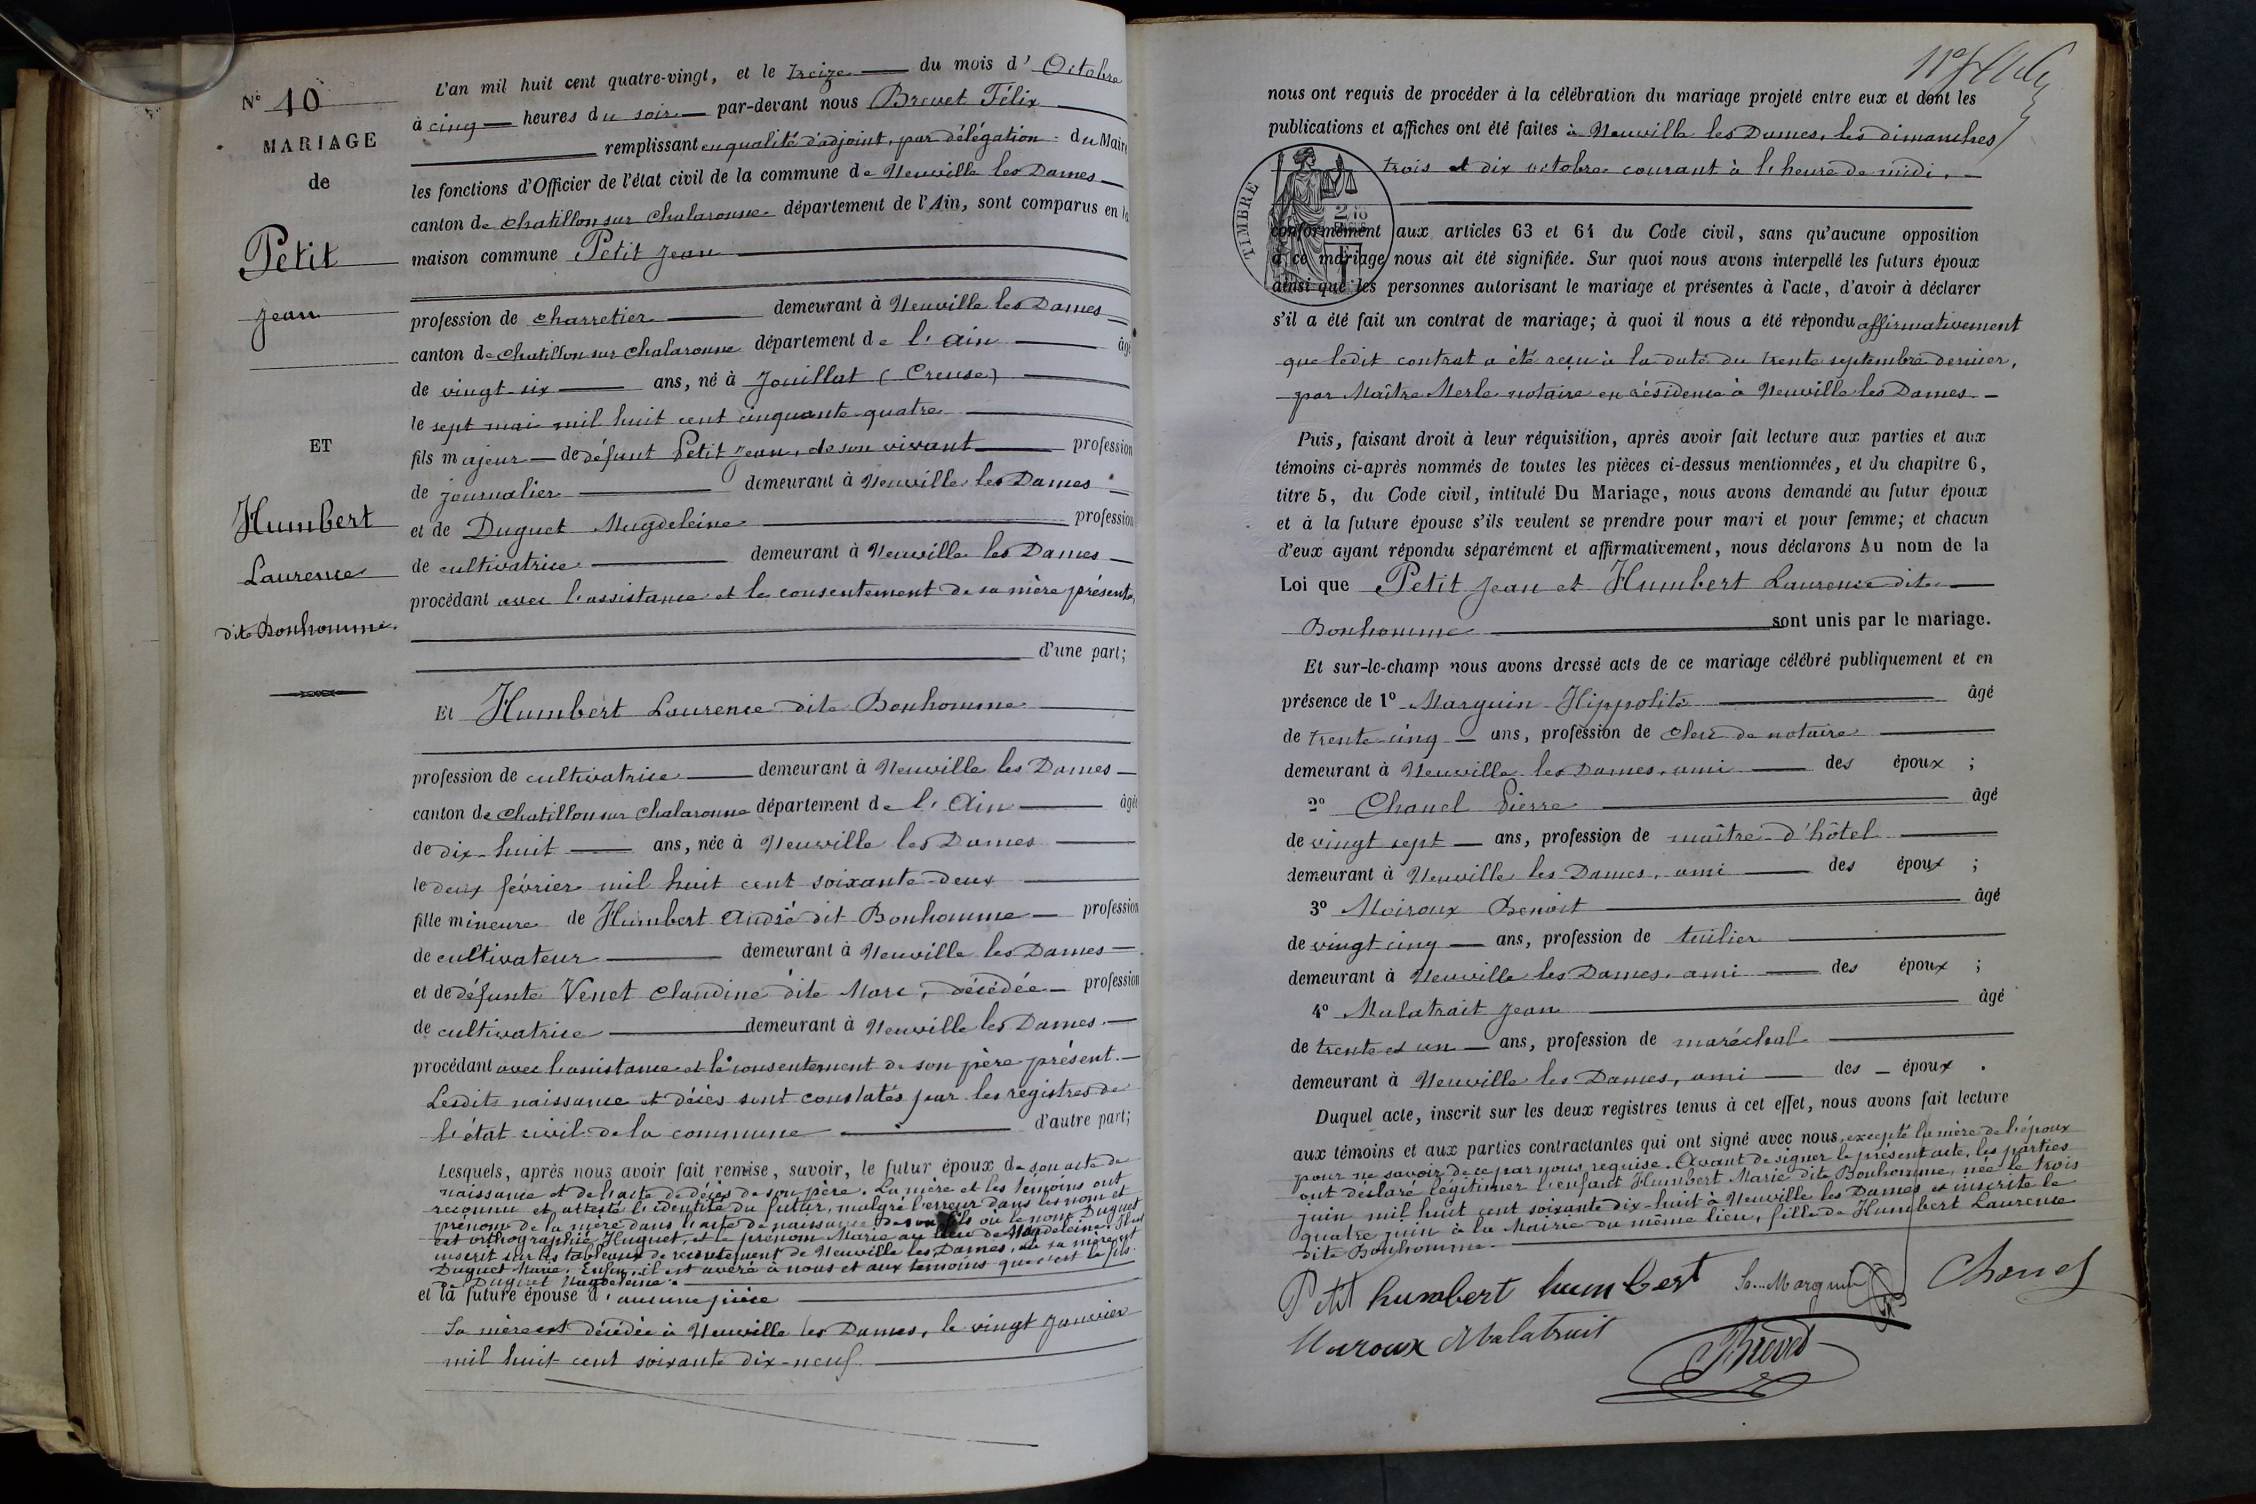 N° 10
MARIAGE
de
Petit
Jean
ET
Humbert
Laurence
dite Bonhomme.
L'an mil huit cent quatre-vingt, et le treize du mois d'Octobre
à cinq heures du soir par-devant nous Brevet Félix
remplissant en qualité d'adjoint, par délégation du Maire
les fonctions d'Officier de l'état civil de la commune de Neuville les Dames
canton de Chatillon sur Chalaronne département de l'Ain, sont comparus en la
maison commune Petit Jean
profession de charretier demeurant à Neuville les Dames
canton de Chatillon sur Chalaronne département de l'Ain âgé
de vingt-six ans, né à Jouillat (Creuse)
le sept mai mil huit cent cinquante-quatre
fils majeur de défunt Petit Jean, de son vivant profession
de journalier demeurant à Neuville les Dames
et de Duguet Magdeleine profession
de cultivatrice demeurant à Neuville les Dames
procédant avec l'assistance et le consentement de sa mère présente,
d'une part;
Et Humbert Laurence dite Bonhomme
profession de cultivatrice demeurant à Neuville les Dames
canton de Chatillon sur Chalaronne département de l'Ain âgée
de dix-huit ans, née à Neuville les Dames
le deux février mil huit cent soixante-deux
fille mineure de Humbert André dit Bonhomme profession
de cultivateur demeurant à Neuville les Dames
et de défunte Venet Claudine dite Marc, décédée profession
de cultivatrice demeurant à Neuville les Dames.
procédant avec l'assistance et le consentement de son père présent.
Lesdits naissance et décès sont constatés par les registres de
l'état civil de la commune d'autre part;
Lesquels, après nous avoir fait remise, savoir, le futur époux de son acte de
naissance et de l'acte de décès de son père. La mère et les témoins ont
reconnu et attesté l'identité du futur, malgré l'erreur dans les nom et
prénom de la mère dans l'acte de naissance de son fils où le nom Duguet
est orthographié Huguet, et le prénom Marie au lieu de Magdeleine. Il est
inscrit sur les tableaux de recrutement de Neuville les Dames, où sa mère est
Duguet Marie. Enfin, il est avéré à nous et aux témoins que c'est le fils
de Duguet Magdeleine.
et la future épouse d'aucune pièce
Sa mère est décédée à Neuville les Dames, le vingt janvier
mil huit cent soixante dix-neuf.
nous ont requis de procéder à la célébration du mariage projeté entre eux et dont les
publications et affiches ont été faites à Neuville les Dames, les dimanches
trois et dix octobre courant à l'heure de midi.
TIMBRE
conformément aux articles 63 et 64 du Code civil, sans qu'aucune opposition
à ce mariage nous ait été signifiée. Sur quoi nous avons interpellé les futurs époux
ainsi que les personnes autorisant le mariage et présentes à l'acte, d'avoir à déclarer
s'il a été fait un contrat de mariage; à quoi il nous a été répondu affirmativement
que ledit contrat a été reçu à la date du trente septembre dernier,
par Maître Merle notaire en résidence à Neuville les Dames.
Puis, faisant droit à leur réquisition, après avoir fait lecture aux parties et aux
témoins ci-après nommés de toutes les pièces ci-dessus mentionnées, et du chapitre 6,
titre 5, du Code civil, intitulé Du Mariage, nous avons demandé au futur époux
et à la future épouse s'ils veulent se prendre pour mari et pour femme; et chacun
d'eux ayant répondu séparément et affirmativement, nous déclarons Au nom de la
Loi que Petit Jean et Humbert Laurence dite
Bonhomme sont unis par le mariage.
Et sur-le-champ nous avons dressé acte de ce mariage célébré publiquement et en
présence de 1° Marguin Hippolite âgé
de trente-cinq ans, profession de clerc de notaire
demeurant à Neuville les Dames, ami des époux ;
2° Chanel Pierre âgé
de vingt sept ans, profession de maître d'hôtel
demeurant à Neuville les Dames, ami des époux ;
3° Moiroux Benoit âgé
de vingt-cinq ans, profession de tuilier
demeurant à Neuville les Dames, ami des époux ;
4° Malatrait Jean âgé
de trente et un ans, profession de maréchal
demeurant à Neuville les Dames, ami des époux.
Duquel acte, inscrit sur les deux registres tenus à cet effet, nous avons fait lecture
aux témoins et aux parties contractantes qui ont signé avec nous, excepté la mère de l'époux
pour ne savoir de ce par nous requise. Avant de signer le présent acte, les parties
ont déclaré légitimer l'enfant Humbert Marie dite Bonhomme, née le trois
juin mil huit cent soixante dix-huit à Neuville les Dames et inscrite le
quatre juin à la Mairie du même lieu, fille de Humbert Laurence
dite Bonhomme.
Petit humbert humbert Marguin Chanel
Moiroux Malatrait
Brevet